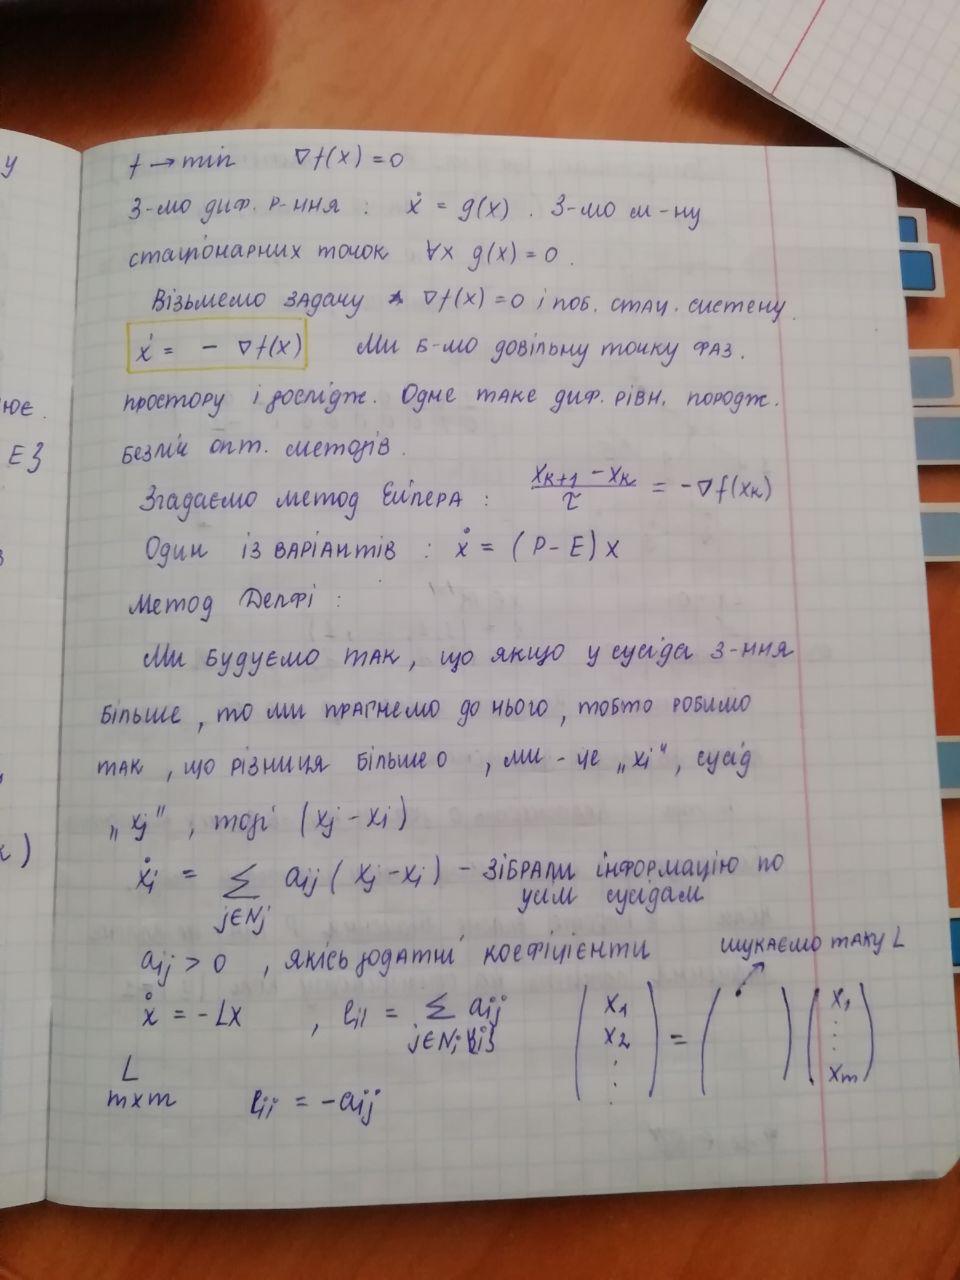 f → min ∇f(x) = 0
З-мо диф. р-ння : ẋ = g(x) . З-мо м-ну
стаціонарних точок ∀x g(x) = 0 .
Візьмемо задачу ∇f(x) = 0 і поб. стац. систему
ẋ = - ∇f(x) Ми б-мо довільну точку фаз.
простору і дослідж. Одне таке диф. рівн. породж.
безліч опт. методів .
Згадаємо метод Ейлера : (x_{k+1} - x_k)/τ = -∇f(x_k)
Один із варіантів : ẋ = (P - E) x
Метод Делфі :
Ми будуємо так , що якщо у сусіда з-ння
більше , то ми прагнемо до нього , тобто робимо
так , що різниця більше 0 , ми - це „xi“ , сусід
„xj“ , тоді (xj - xi)
ẋi = ∑ aij ( xj - xi ) - зібрали інформацію по
j∈Nj усім сусідам
aij > 0 , якісь додатні коефіцієнти
шукаємо таку L
ẋ = -Lx , lii = ∑ aij
j∈Ni
( x1 x2 ⋮ ) = ( ) ( x1 ⋮ xm )
L
m×m
= -aij
у
ює .
Е}
к )